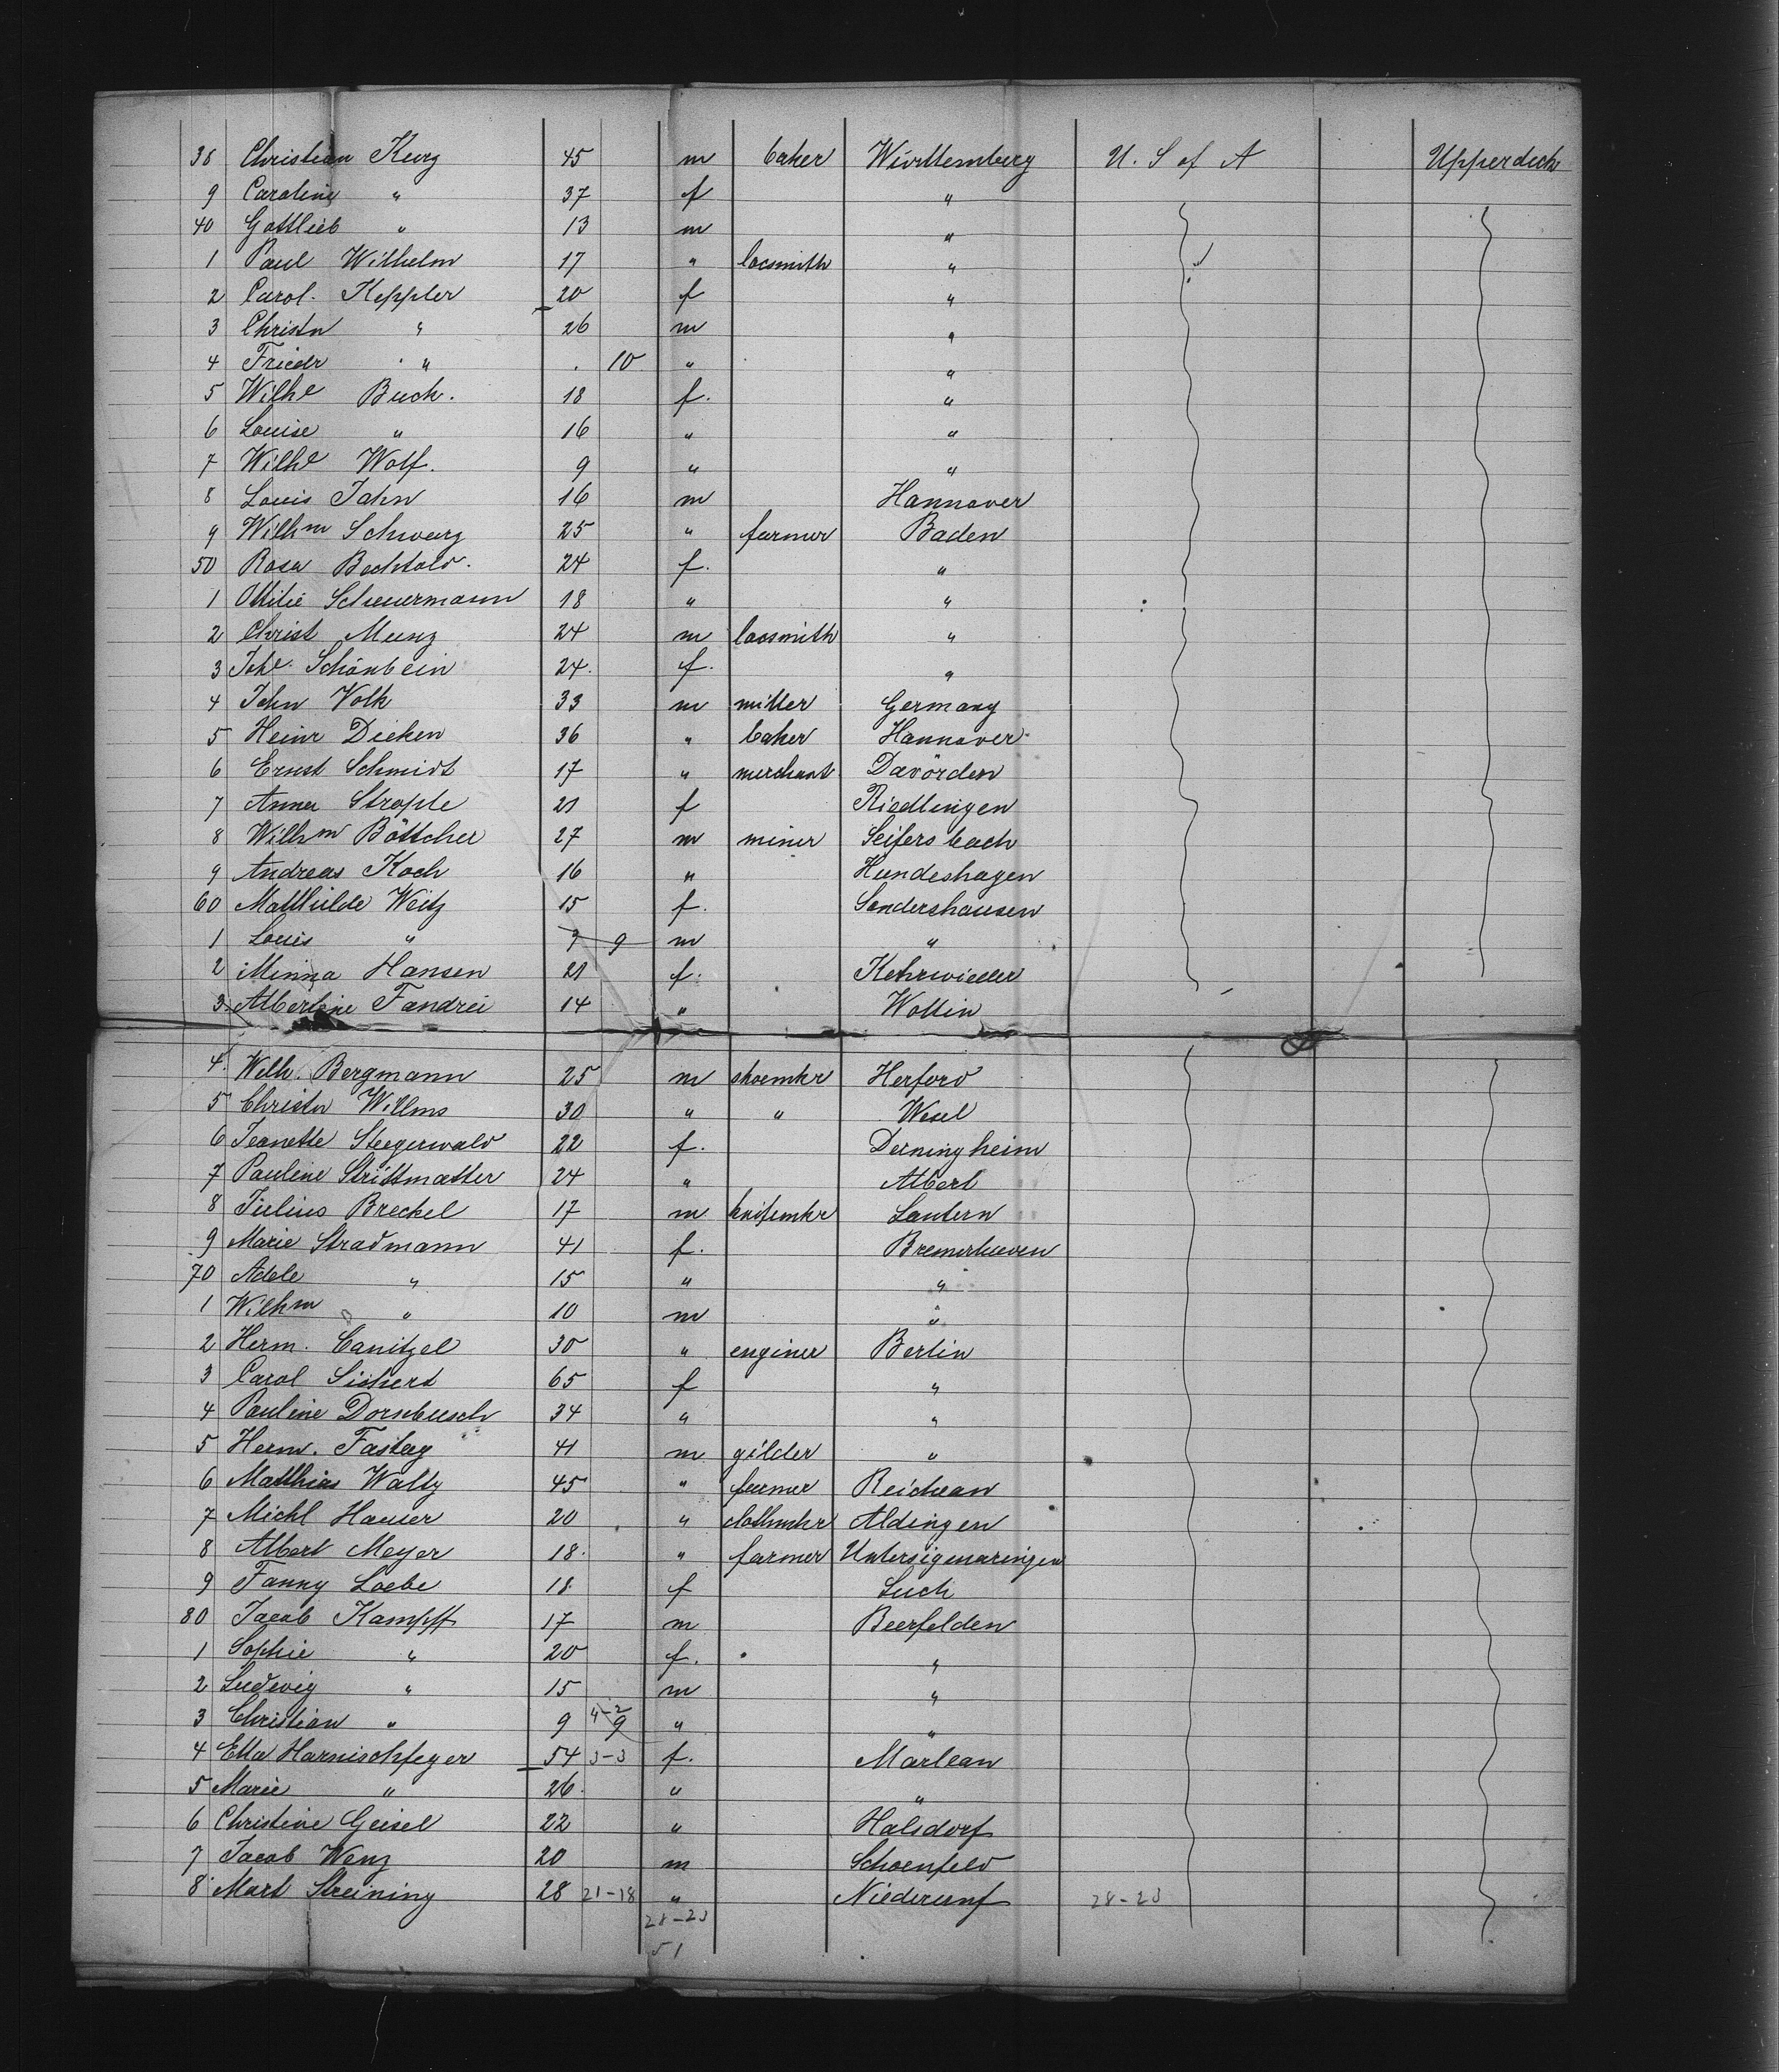 38 Christian Kurz 45 m baker Württemberg U. S of A Upperdeck
9 Caroline " 37 f "
40 Gottlieb " 13 m "
1 Paul Wilhelm 17 " locsmith "
2 Carol. Keppler 20 f "
3 Christn " 26 m "
4 Friedr " . 10 " "
5 Wilhe Buck. 18 f. "
6 Louise " 16 " "
7 Wilhe Wolf. 9 " "
8 Louis Jahn 16 m Hannover
9 Wilhm Schwarz 25 " farmer Baden
50 Rosa Bechtold. 24 f. "
1 Ottilie Scheuermann 18 " "
2 Christ Munz 24 m locsmith "
3 Johe. Schönbein 24. f. "
4 John Volk 33 m miller Germany
5 Heinr Dieken 36 " baker Hannover
6 Ernst Schmidt 17 " merchant Davörden
7 Anna Strople 21 f Riedlingen
8 Wilhm Böttcher 27 m miner Seifersbach
9 Andreas Koch 16 " Hundeshagen
60 Mathilde Weitz 15 f. Sondershausen
1 Louis " 9 9 m "
2 Minna Hansen 21 f. Kehrwieder
3 Albertine Fandrei 14 " Wollin
4 Wilh. Bergmann 25 m shoemkr Herford
5 Christn Willms 30 " " Wesel
6 Jeanette Steegerwald 22 f. Derningheim
7 Pauline Strittmatter 24 " Albert
8 Julius Breckel 17 m knifemkr Lautern
9 Marie Stradmann 41 f. Bremerhaven
70 Adele " 15 " "
1 Wilhm " 10 m "
2 Herm. Canitzel 30 " enginer Berlin
3 Carol Sichert 65 f "
4 Pauline Dornbusch 34 " "
5 Herm. Fastag 41 m gilder "
6 Matthias Wally 45 " farmer Reichean
7 Michl Hauser 20 " clothmkr Aldingen
8 Albert Meyer 18. " farmer Untersigmaringen
9 Fanny Loebe 18. f Luch
80 Jacob Kampff 17 m Beerfelden
1 Sophie " 20 f. "
2 Ludwig " 15 m "
3 Christian " 9 4-2 9 " "
4 Etta Harnischfeger 54 3-3 f. Marlean
5 Marie " 26. " "
6 Christine Geisel 22 " Halsdorf
7 Jacob Wenz 20 m Schoenfeld
8 Mart Streining 28 21-18 " Niederurf 28-23
28-23
51